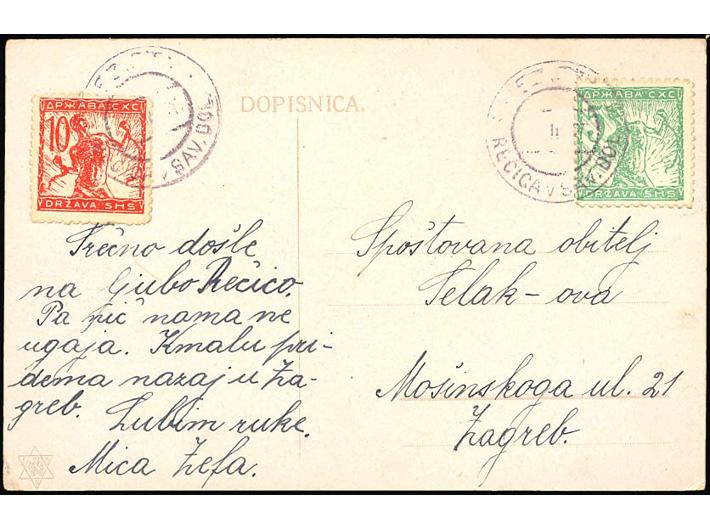 DOPISNICA.
ДРЖАВА СХС
10
DRŽAVA SHS
REČICA V SAV. DOL.
ДРЖАВА СХС
5
DRŽAVA SHS
REČICA V SAV. DOL.
Srečno došle
na Gjubo Rečico.
Pa nič nama ne
ugaja. Kmalu pri-
dema nazaj u Za-
greb. Lubim ruke.
Mica Zefa.
Spoštovana obitelj
Selak-ova
Mošinskoga ul. 21
Zagreb.